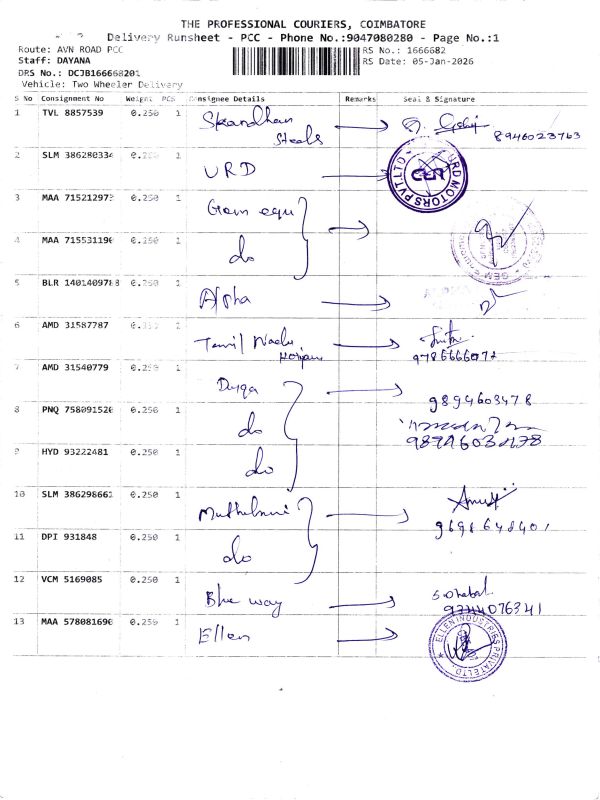 THE PROFESSIONAL COURIERS, COIMBATORE
Delivery Runsheet - PCC - Phone No.:9047080280 - Page No.:1
Route: AVN ROAD PCC
RS No.: 1666682
Staff: DAYANA
RS Date: 05-Jan-2026
DRS No.: DCJB166668201
Vehicle: Two Wheeler Delivery
S No Consignment No Weight PCS Consignee Details Remarks Seal & Signature
1 TVL 8857539 0.250 1 Skandhan Steels 8946023763
2 SLM 386280334 0.250 1 URD
URD MOTORS PVT LTD
3 MAA 715212973 0.250 1 Gem equ
4 MAA 715531190 0.250 1 do
5 BLR 1401409788 0.250 1 Alpha
6 AMD 31587787 0.250 1 Tamil Nadu 9786666072
7 AMD 31540779 0.250 1 Durga 9894603478
8 PNQ 758091520 0.250 1 do
9 HYD 93222481 0.250 1 do
10 SLM 386298662 0.250 1
11 DPI 931848 0.250 1 do
12 VCM 5169085 0.250 1 Blue way 9744076341
13 MAA 578081690 0.250 1 Ellen
ELLEN INDUSTRIES PRIVATE LTD.